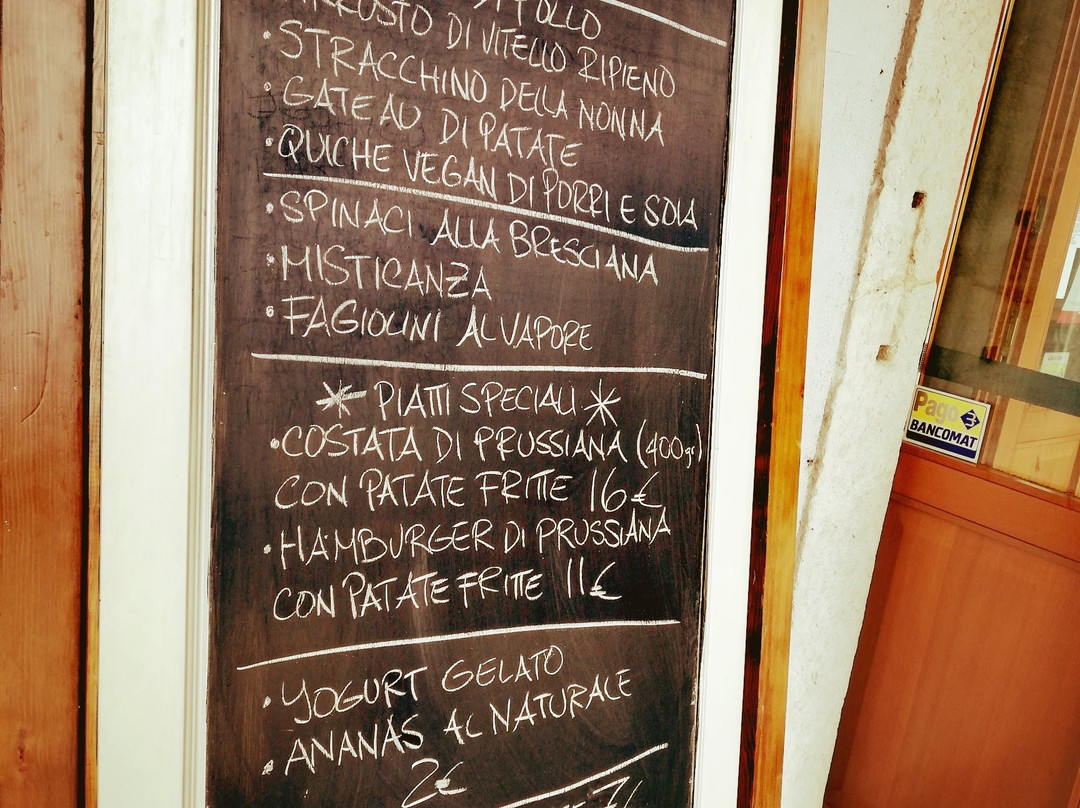 POLLO
ARROSTO DI VITELLO RIPIENO
• STRACCHINO DELLA NONNA
• GATEAU DI PATATE
• QUICHE VEGAN DI PORRI E SOIA
• SPINACI ALLA BRESCIANA
• MISTICANZA
• FAGIOLINI AL VAPORE
* PIATTI SPECIALI *
• COSTATA DI PRUSSIANA (400gr)
CON PATATE FRITTE 16€
• HAMBURGER DI PRUSSIANA
CON PATATE FRITTE 11€
• YOGURT GELATO
• ANANAS AL NATURALE
2€
Pago
BANCOMAT